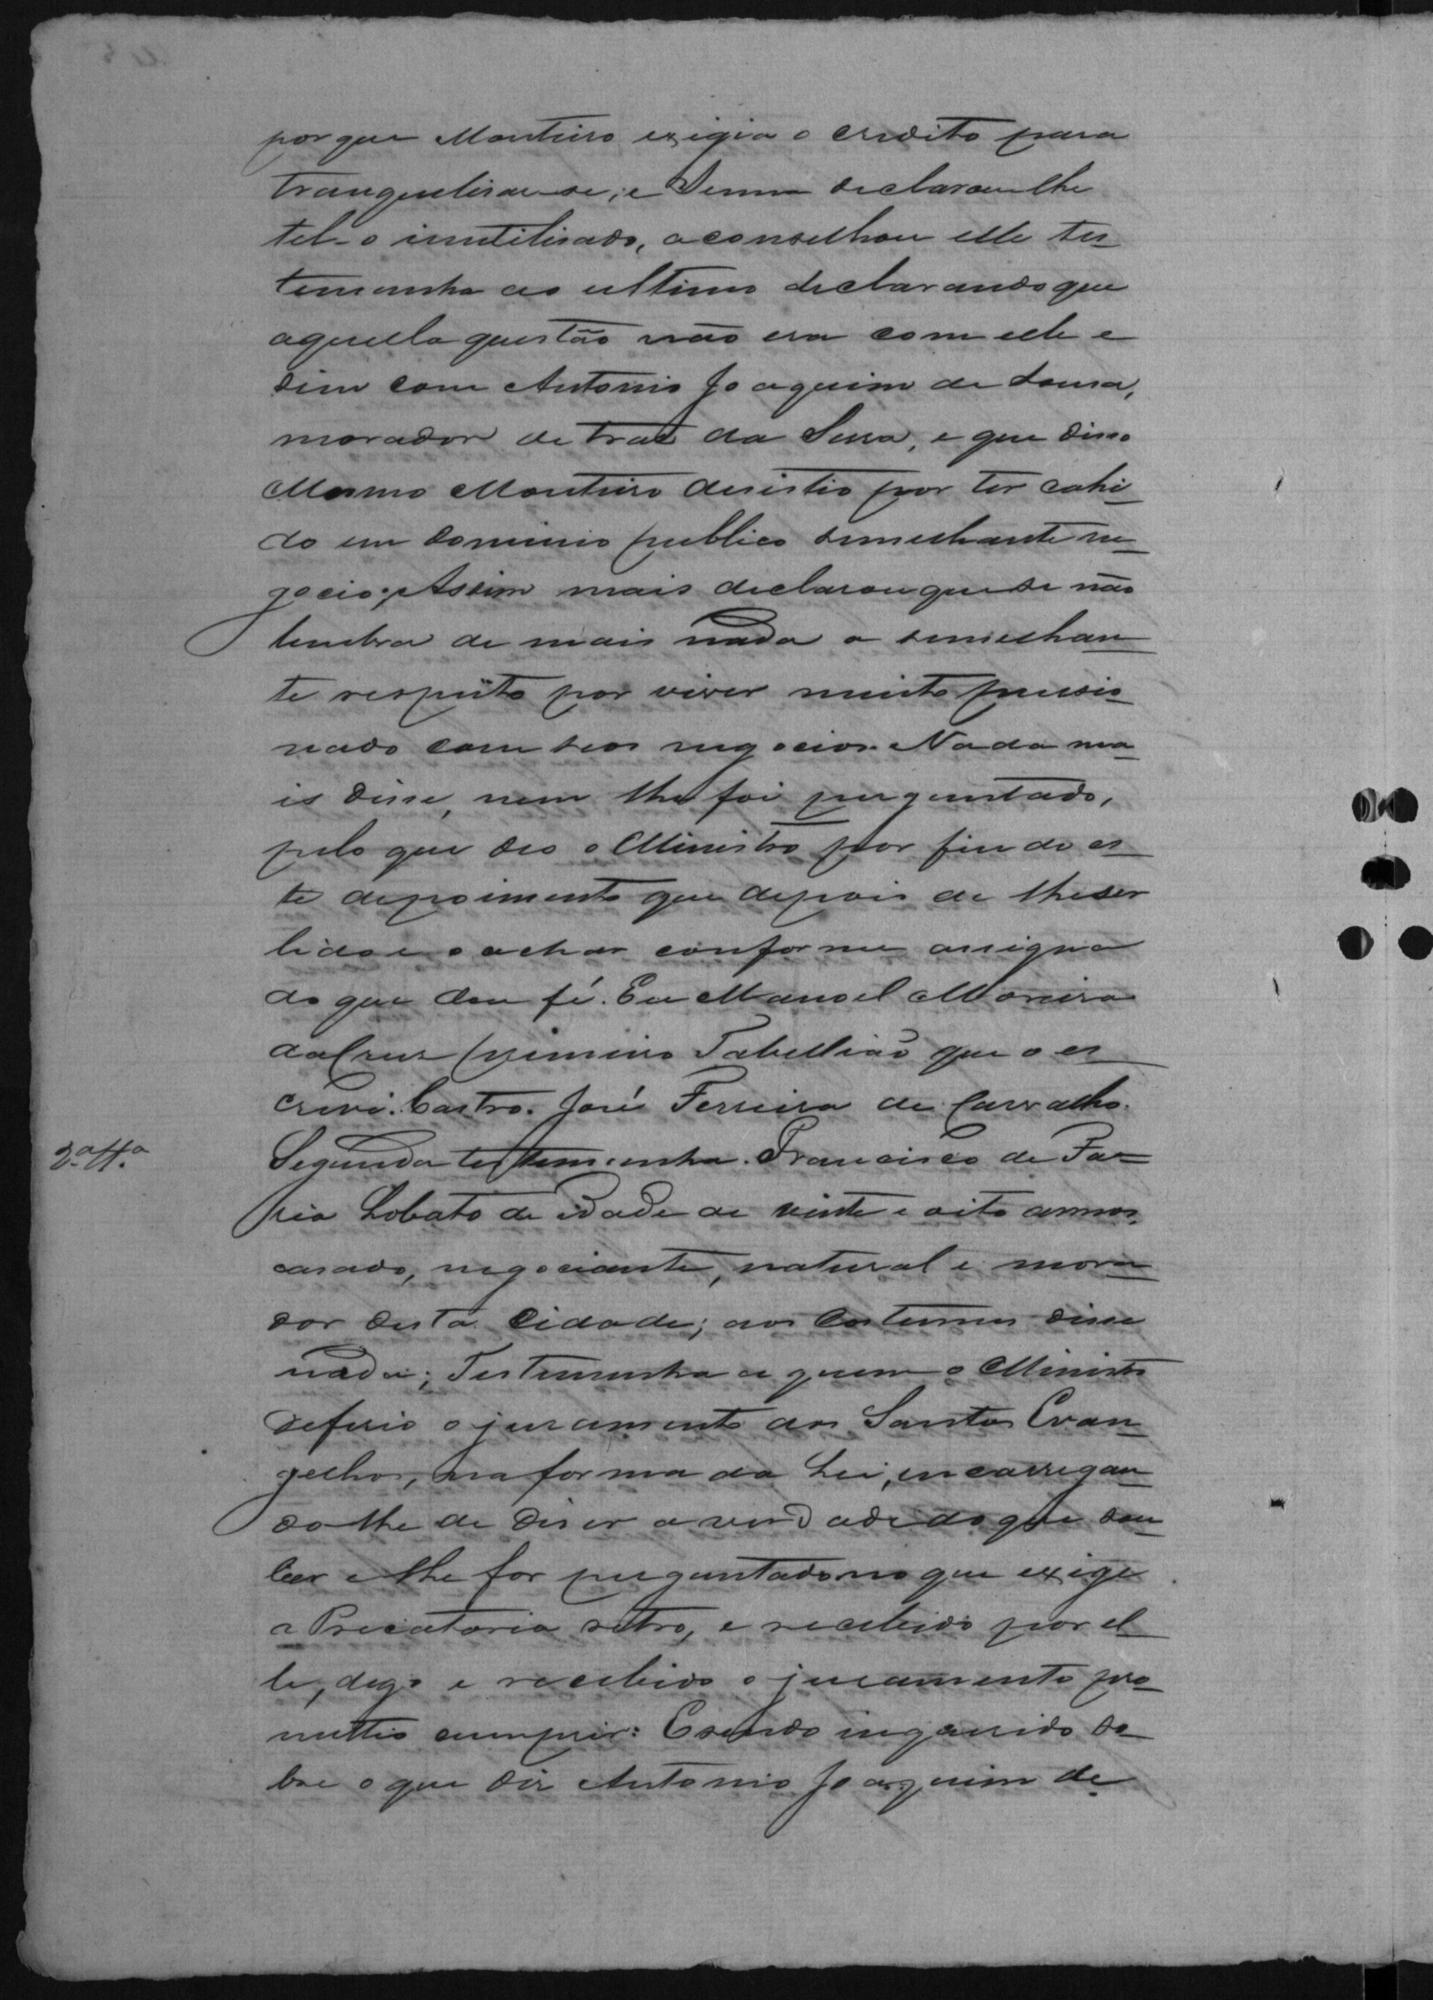 porque Monteiro exigia o credito para
tranquelisar-se, e Senna declarou lhe
tel-o inutilisado, aconselhou elle tes-
temunha ao ultimo declarando que
aquella questão não era com elle e
sim com Antonio Joaquim de Sousa,
morador de traz da Serra, e que disso
Mesmo Monteiro desistio por ter cahi-
do em dominio publico semelhante ne-
gocio; Assim mais declarou que se não
lembra de mais nada a semelhan-
te respeito por viver muito pressio-
nado com seos negocios. Nada ma-
is disse, nem lhe foi perguntado,
pelo que deo o Ministro por findo es-
te depoimento que depois de lhe ser
lido e o achar conforme assigna
do que dou fé. Eu Manoel Moreira
da Cruz primeiro Tabellião que o es-
crevi. Castro. José Ferreira de Carvalho.
2.ª tt.ª
Segunda testemunha. Francisco de Fa-
ria Lobato de idade de vinte e oito annos,
casado, negociante, natural e mora-
dor desta Cidade; aos Costumes disse
nada; Testemunha a quem o Ministro
deferio o juramento aos Santos Evan-
gelhos, na forma da Lei, encarregan-
do lhe de diser a verdade do que sou-
ber e lhe for perguntado no que exige
a Precatoria retro, e recebido por el-
le, digo e recebido o juramento pro-
metteo cumprir: E sendo inquerido so-
bre o que diz Antonio Joaquim de